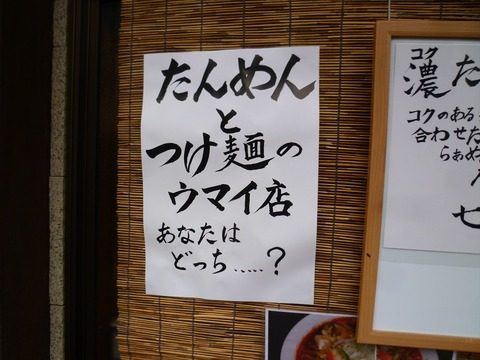 たんめん
と
つけ麺の
ウマイ店
あなたは
どっち.....?
コク
濃た
コクのある
合わせた
らぁめ